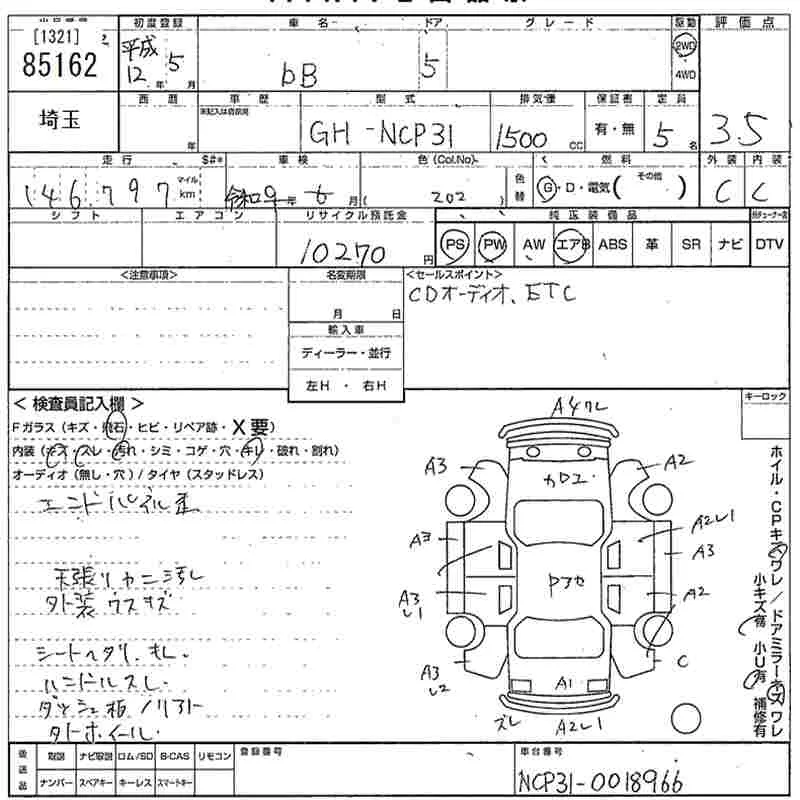 [1321] 2
85162
初度登録
平成
12年 5月
車名
bB
ドア
5
グレード
駆動
2WD
4WD
評価点
3.5
埼玉
西暦
年
車歴
未記入は自家用
型式
GH-NCP31
排気量
1500 CC
保証書
有・無
定員
5名
走行
146,797
マイル
km
S#*
車検
令和4年 6月
色 (Col.No)
( 202 )
色替
燃料
G・D・電気(その他 )
外装
C
内装
C
シフト
エアコン
リサイクル預託金
10270円
純正装備品
PS PW AW エアB ABS 革 SR ナビ DTV
<注意事項>
名変期限
月 日
輸入車
ディーラー・並行
左H・右H
<セールスポイント>
CDオーディオ、ETC
キーロック
< 検査員記入欄 >
Fガラス (キズ・飛石・ヒビ・リペア跡・X要)
内装 (キズ・スレ・汚れ・シミ・コゲ・穴・キレ・破れ・割れ)
オーディオ (無し・穴) / タイヤ (スタッドレス)
天張りヤニ汚レ
外装ウスキズ
シートヘタリ、キレ
ハンドルスレ
ダッシュ板ノリアト
外ホイール
A4ワレ
A3
A2
カロエ
A3
A2レ1
A3
Pアセ
A3
レ1
A2
A3
レ2
C
A1
ズレ
A2レ1
ホイル・CPキズワレ/ドアミラーキズワレ
小キズ有 小U有 補修有
後送品
取説 ナビ取説 ロム/SD B-CAS リモコン
ナンバー スペアキー キーレス スマートキー
登録番号
車台番号
NCP31-0018966